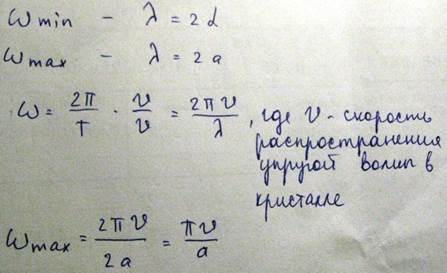 ω min - λ = 2d
ω max - λ = 2a
ω = 2π/T · υ/υ = 2πυ/λ, где υ - скорость
распространения
упругой волны в
кристалле
ω max = 2πυ/2a = πυ/a